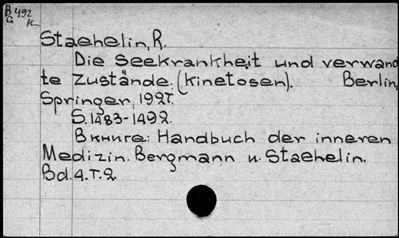 B 492
G
н
Staehelin, R.
Die Seekrankheit und verwand
te Zustände. (Kinetosen). Berlin,
Springer, 1927.
S. 1483-1492.
В книге: Handbuch der inneren
Medizin. Bergmann u. Staehelin.
Bd. 4. T. 2.